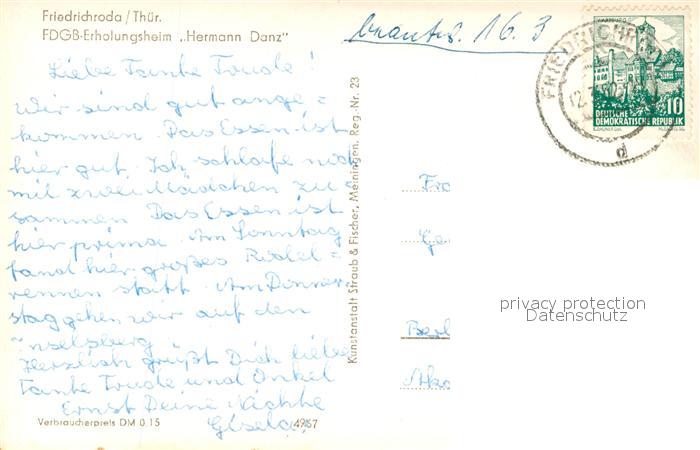 Friedrichroda/Thür.
FDGB-Erholungsheim „Hermann Danz"
beantw. 16. 3
Liebe Tante Trude!
Wir sind gut ange=
kommen. Das Essen ist
hier gut. Ich schlafe noch
mit zwei Mädchen zu=
sammen. Das Essen ist
hier prima. Am Sonntag
fand hier großes Rodel=
rennen statt. Am Donners
tag gehen wir auf den
Inselsberg
Herzlich grüßt Dich liebe
Tante Trude und Onkel
Ernst Deine Nichte
Gisela.
Verbraucherpreis DM 0.15
4967
Kunstanstalt Straub & Fischer, Meiningen. Reg.-Nr. 23
FRIEDRICHRO
d
WARTBURG
10
DEUTSCHE
DEMOKRATISCHE REPUBLIK
Fra
Ger
Berl
privacy protection
Datenschutz